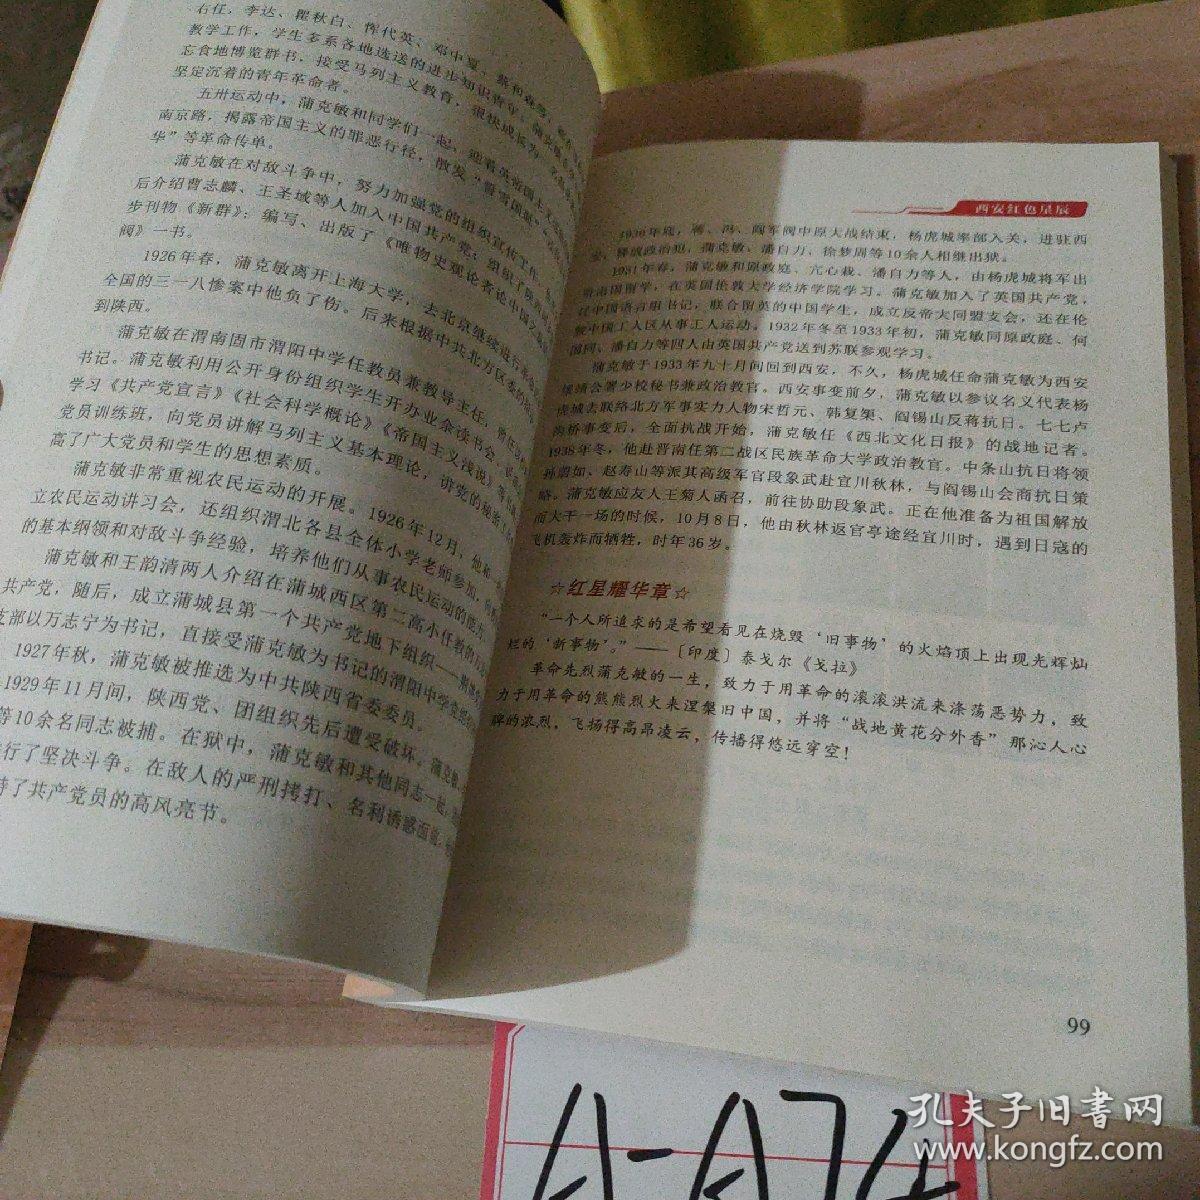 右任、李达、瞿秋白、恽代英、邓中夏、蔡和森等
教学工作，学生多系各地选送的进步知识青年。蒲克敏在
忘食地博览群书，接受马列主义教育，很快成长为一名
坚定沉着的青年革命者。
五卅运动中，蒲克敏和同学们一起，迎着英帝国主义
南京路，揭露帝国主义的罪恶行径，散发“誓雪国耻”
华”等革命传单。
蒲克敏在对敌斗争中，努力加强党的组织宣传工作，
后介绍曹志麟、王圣域等人加入中国共产党；组织了陕西
步刊物《新群》；编写、出版了《唯物史观论者论中国
阀》一书。
1926年春，蒲克敏离开上海大学，去北京继续进行革命
全国的三一八惨案中他负了伤。后来根据中共北方区委的
到陕西。
蒲克敏在渭南固市渭阳中学任教员兼教导主任，曾任
书记。蒲克敏利用公开身份组织学生开办业余读书会，
学习《共产党宣言》《社会科学概论》《帝国主义浅说》等
党员训练班，向党员讲解马列主义基本理论，讲党的秘密
高了广大党员和学生的思想素质。
蒲克敏非常重视农民运动的开展。1926年12月，他和
立农民运动讲习会，还组织渭北各县全体小学老师参加，
的基本纲领和对敌斗争经验，培养他们从事农民运动的能力。
蒲克敏和王韵清两人介绍在蒲城西区第二高小任教的
共产党，随后，成立蒲城县第一个共产党地下组织——
支部以万志宁为书记，直接受蒲克敏为书记的渭阳中学党
1927年秋，蒲克敏被推选为中共陕西省委委员。
1929年11月间，陕西党、团组织先后遭受破坏。蒲克敏
等10余名同志被捕。在狱中，蒲克敏和其他同志一起，
行了坚决斗争。在敌人的严刑拷打、名利诱惑面前，
持了共产党员的高风亮节。
西安红色星辰
1930年底，蒋、冯、阎军阀中原大战结束，杨虎城率部入关，进驻西
安，释放政治犯，蒲克敏、潘自力、徐梦周等10余人相继出狱。
1931年春，蒲克敏和原政庭、亢心栽、潘自力等人，由杨虎城将军出
资出国留学，在英国伦敦大学经济学院学习。蒲克敏加入了英国共产党，
任中国语言组书记，联合留英的中国学生，成立反帝大同盟支会，还在伦
敦中国工人区从事工人运动。1932年冬至1933年初，蒲克敏同原政庭、何
国同、潘自力等四人由英国共产党送到苏联参观学习。
蒲克敏于1933年九十月间回到西安，不久，杨虎城任命蒲克敏为西安
绥靖公署少校秘书兼政治教官。西安事变前夕，蒲克敏以参议名义代表杨
虎城去联络北方军事实力人物宋哲元、韩复榘、阎锡山反蒋抗日。七七卢
沟桥事变后，全面抗战开始，蒲克敏任《西北文化日报》的战地记者。
1938年冬，他赴晋南任第二战区民族革命大学政治教官。中条山抗日将领
孙蔚如、赵寿山等派其高级军官段象武赴宜川秋林，与阎锡山会商抗日策
略。蒲克敏应友人王菊人函召，前往协助段象武。正在他准备为祖国解放
而大干一场的时候，10月8日，他由秋林返官亭途经宜川时，遇到日寇的
飞机轰炸而牺牲，时年36岁。
☆红星耀华章☆
“一个人所追求的是希望看见在烧毁‘旧事物’的火焰顶上出现光辉灿
烂的‘新事物’。”——［印度］泰戈尔《戈拉》
革命先烈蒲克敏的一生，致力于用革命的滚滚洪流来涤荡恶势力，致
力于用革命的熊熊烈火来涅槃旧中国，并将“战地黄花分外香”那沁人心
脾的浓烈，飞扬得高昂凌云，传播得悠远穿空！
99
A-A74
孔夫子旧书网
www.kongfz.com